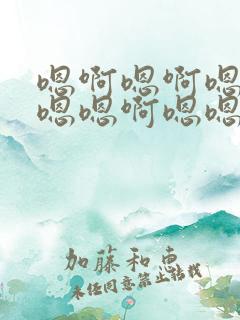 嗯啊嗯啊嗯
嗯嗯啊嗯嗯
加藤和惠
未经同意禁止转载